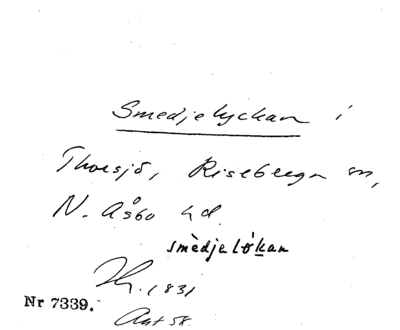 Smedjelyckan i
Thorsjö, Riseberga sn,
N. Åsbo hd.
smèdjelökan
1831
Nr 7339.
Akt 58.